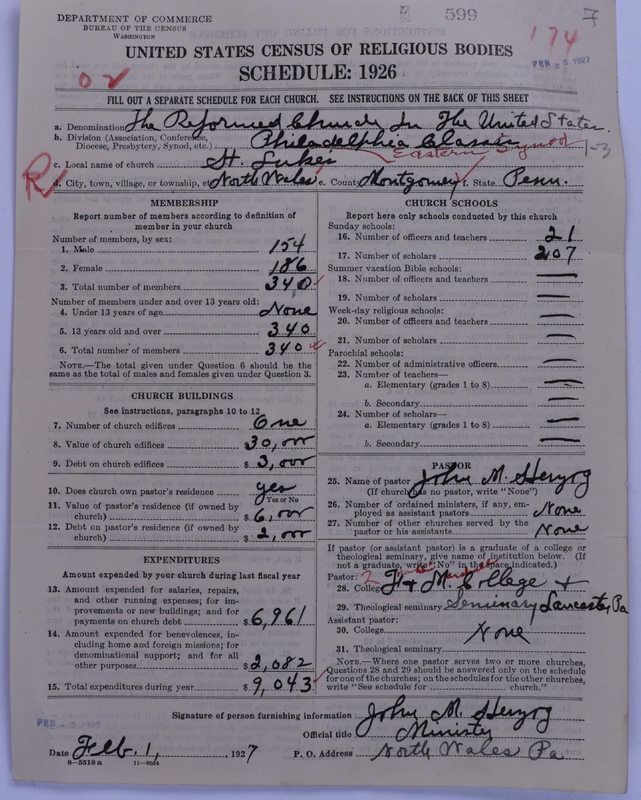 DEPARTMENT OF COMMERCE
BUREAU OF THE CENSUS
WASHINGTON
599
174
FEB 23 1927
UNITED STATES CENSUS OF RELIGIOUS BODIES
SCHEDULE: 1926
FILL OUT A SEPARATE SCHEDULE FOR EACH CHURCH. SEE INSTRUCTIONS ON THE BACK OF THIS SHEET
a. Denomination The Reformed Church In The United States.
b. Division (Association, Conference, Diocese, Presbytery, Synod, etc.) Philadelphia Classis
Eastern Synod 1-3
c. Local name of church St. Lukes
d. City, town, village, or township, etc. North Wales. e. County Montgomery f. State Penn.
MEMBERSHIP
Report number of members according to definition of
member in your church
Number of members, by sex:
1. Male 154
2. Female 186
3. Total number of members 340
Number of members under and over 13 years old:
4. Under 13 years of age None
5. 13 years old and over 340
6. Total number of members 340
NOTE.—The total given under Question 6 should be
same as the total of males and females given under Question 3.
CHURCH BUILDINGS
See instructions, paragraphs 10 to 12
7. Number of church edifices One
8. Value of church edifices $30,000
9. Debt on church edifices $3,000
10. Does church own pastor's residence yes
Yes or No
11. Value of pastor's residence (if owned by
church) $6,000
12. Debt on pastor's residence (if owned by
church) $2,000
EXPENDITURES
Amount expended by your church during last fiscal year
13. Amount expended for salaries, repairs,
and other running expenses; for im-
provements or new buildings; and for
payments on church debt $6,961
14. Amount expended for benevolences, in-
cluding home and foreign missions; for
denominational support; and for all
other purposes $2,082
15. Total expenditures during year $9,043
CHURCH SCHOOLS
Report here only schools conducted by this church
Sunday schools:
16. Number of officers and teachers 21
17. Number of scholars 207
Summer vacation Bible schools:
18. Number of officers and teachers —
19. Number of scholars —
Week-day religious schools:
20. Number of officers and teachers —
21. Number of scholars —
Parochial schools:
22. Number of administrative officers —
23. Number of teachers—
a. Elementary (grades 1 to 8) —
b. Secondary —
24. Number of scholars—
a. Elementary (grades 1 to 8) —
b. Secondary —
PASTOR
25. Name of pastor John M. Herzog
(If church has no pastor, write "None")
26. Number of ordained ministers, if any, em-
ployed as assistant pastors None
27. Number of other churches served by the
pastor or his assistants None
If pastor (or assistant pastor) is a graduate of a college or
theological seminary, give name of institution below. (If
not a graduate, write "No" in the space indicated.)
Pastor:
28. College F + M College +
29. Theological seminary Seminary Lancaster, Pa
Assistant pastor:
30. College None
31. Theological seminary
NOTE.—Where one pastor serves two or more churches,
Questions 28 and 29 should be answered only on the schedule
for one of the churches; on the schedules for the other churches,
write "See schedule for church."
Signature of person furnishing information John M. Herzog
Official title Minister
Date Feb. 1, 1927 P. O. Address North Wales Pa
8—5518a 11—9054